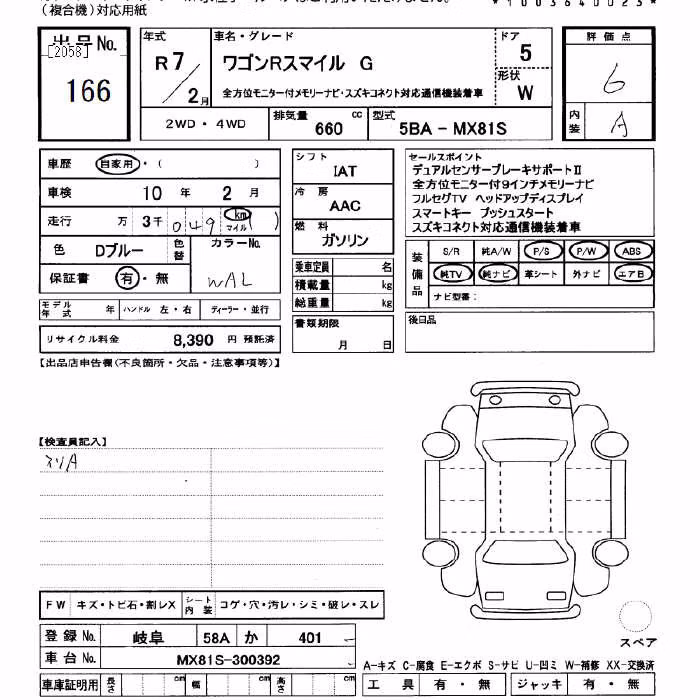 (複合機)対応用紙
*1003640023*
出品No.
[2058]
166
年式
R7/2月
車名・グレード
ワゴンRスマイル G
全方位モニター付メモリーナビ・スズキコネクト対応通信機装着車
ドア
5
形状
W
評価点
6
内装
A
2WD・4WD
排気量 660 cc
型式 5BA-MX81S
車歴 自家用・( )
車検 10年 2月
走行 万 3千 049 km マイル ( )
色 Dブルー 色替
カラーNo.
WAL
保証書 有・無
モデル年式 年 ハンドル 左・右 ディーラー・並行
リサイクル料金 8,390 円 預託済
シフト
IAT
冷房
AAC
燃料
ガソリン
乗車定員 名
積載量 kg
総重量 kg
書類期限
月 日
セールスポイント
デュアルセンサーブレーキサポートII
全方位モニター付9インチメモリーナビ
フルセグTV ヘッドアップディスプレイ
スマートキー プッシュスタート
スズキコネクト対応通信機装着車
装備品
S/R 純A/W P/S P/W ABS
純TV 純ナビ 革シート 外ナビ エアB
ナビ型番:
後日品
【出品店申告欄(不良箇所・欠品・注意事項等)】
【検査員記入】
スソA
FW キズ・トビ石・割レX シート内装 コゲ・穴・汚レ・シミ・破レ・スレ
登録No. 岐阜 58A か 401
車台No. MX81S-300392
車庫証明用 長さ cm 幅 cm 高さ cm
スペア
A-キズ C-腐食 E-エクボ S-サビ U-凹ミ W-補修 XX-交換済
工具 有・無 ジャッキ 有・無